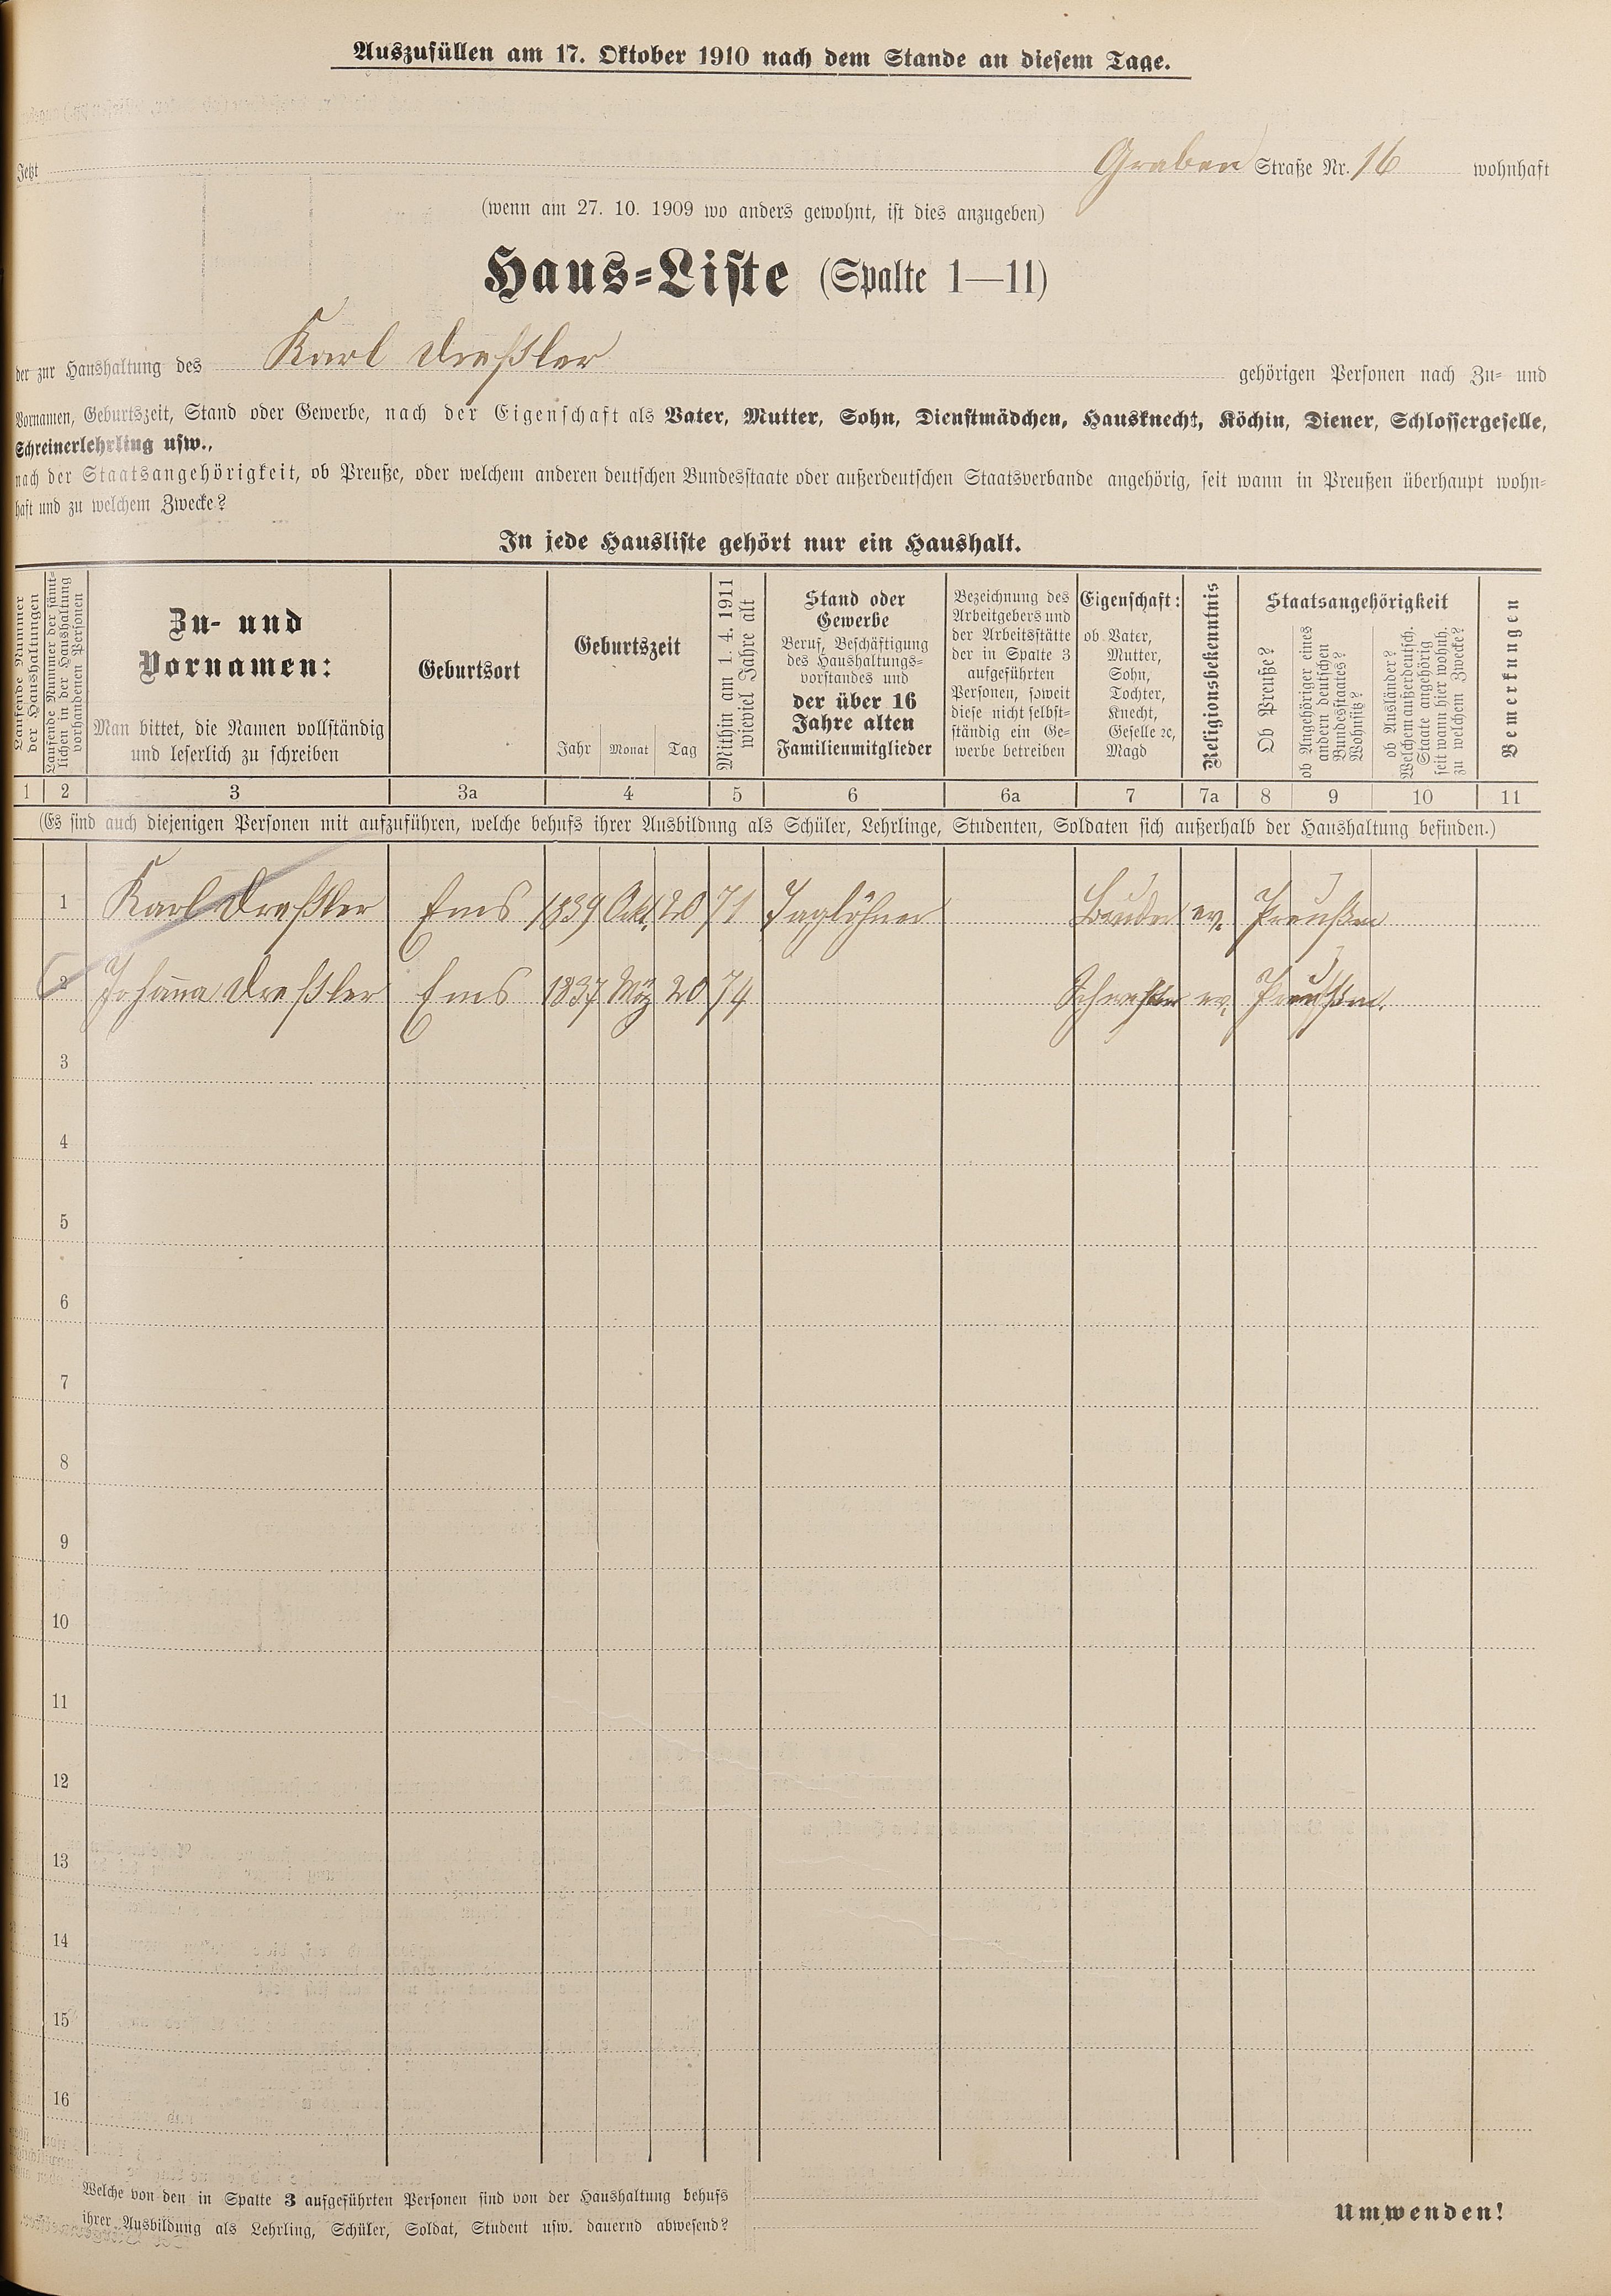 Auszufüllen am 17. Oktober 1910 nach dem Stande an diesem Tage.
Jetzt Graben Straße Nr. 16 wohnhaft
(wenn am 27. 10. 1909 wo anders gewohnt, ist dies anzugeben)
Haus-Liste (Spalte 1—11)
der zur Haushaltung des Karl Dreßler gehörigen Personen nach Zu- und
Vornamen, Geburtszeit, Stand oder Gewerbe, nach der Eigenschaft als Vater, Mutter, Sohn, Dienstmädchen, Hausknecht, Köchin, Diener, Schlossergeselle,
Schreinerlehrling usw.,
nach der Staatsangehörigkeit, ob Preuße, oder welchem anderen deutschen Bundesstaate oder außerdeutschen Staatsverbande angehörig, seit wann in Preußen überhaupt wohn-
haft und zu welchem Zwecke?
In jede Hausliste gehört nur ein Haushalt.
Laufende Nummer
der Haushaltungen
Laufende Nummer der sämt-
lichen in der Haushaltung
vorhandenen Personen
Zu- und
Vornamen:
Man bittet, die Namen vollständig
und leserlich zu schreiben
Geburtsort
Geburtszeit
Jahr Monat Tag
Mithin am 1. 4. 1911
wieviel Jahre alt
Stand oder
Gewerbe
Beruf, Beschäftigung
des Haushaltungs-
vorstandes und
der über 16
Jahre alten
Familienmitglieder
Bezeichnung des
Arbeitgebers und
der Arbeitsstätte
der in Spalte 3
aufgeführten
Personen, soweit
diese nicht selbst-
ständig ein Ge-
werbe betreiben
Eigenschaft:
ob Vater,
Mutter,
Sohn,
Tochter,
Knecht,
Geselle ꝛc,
Magd
Religionsbekenntnis
Staatsangehörigkeit
Ob Preuße?
ob Angehöriger eines
andern deutschen
Bundesstaates?
Wohnsitz?
ob Ausländer?
Welchem außerdeutsch.
Staate angehörig
seit wann hier wohnh.
zu welchem Zwecke?
Bemerkungen
1 2 3 3a 4 5 6 6a 7 7a 8 9 10 11
(Es sind auch diejenigen Personen mit aufzuführen, welche behufs ihrer Ausbildung als Schüler, Lehrlinge, Studenten, Soldaten sich außerhalb der Haushaltung befinden.)
1 Karl Dreßler Ems 1839 Okt. 20 71 Taglöhner Bruder ev. Preußen
2 Johanna Dreßler Ems 1837 Mrz 20 74 Schwester ev. Preußen.
3
4
5
6
7
8
9
10
11
12
13
14
15
16
Welche von den in Spalte 3 aufgeführten Personen sind von der Haushaltung behufs
ihrer Ausbildung als Lehrling, Schüler, Soldat, Student usw. dauernd abwesend?
Umwenden!